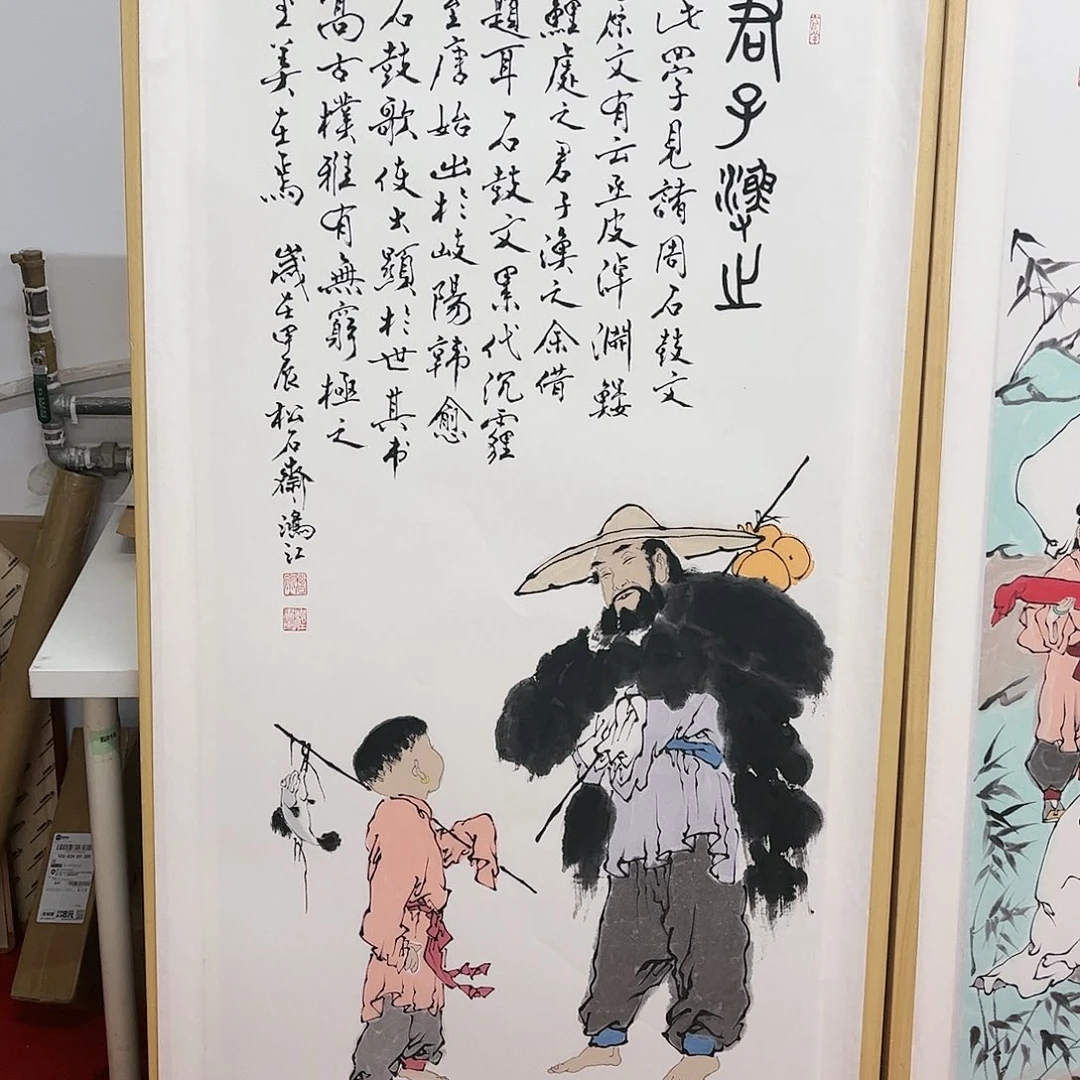 君子漁之
此四字見諸周石鼓文
原文有云丞皮淖淵鰋
鯉處之君子漁之余借
題耳石鼓文累代沉霾
至唐始出於岐陽韓愈
石鼓歌使大顯於世其书
高古樸雅有無窮極之
至美在焉 歲在甲辰松石齋鴻江